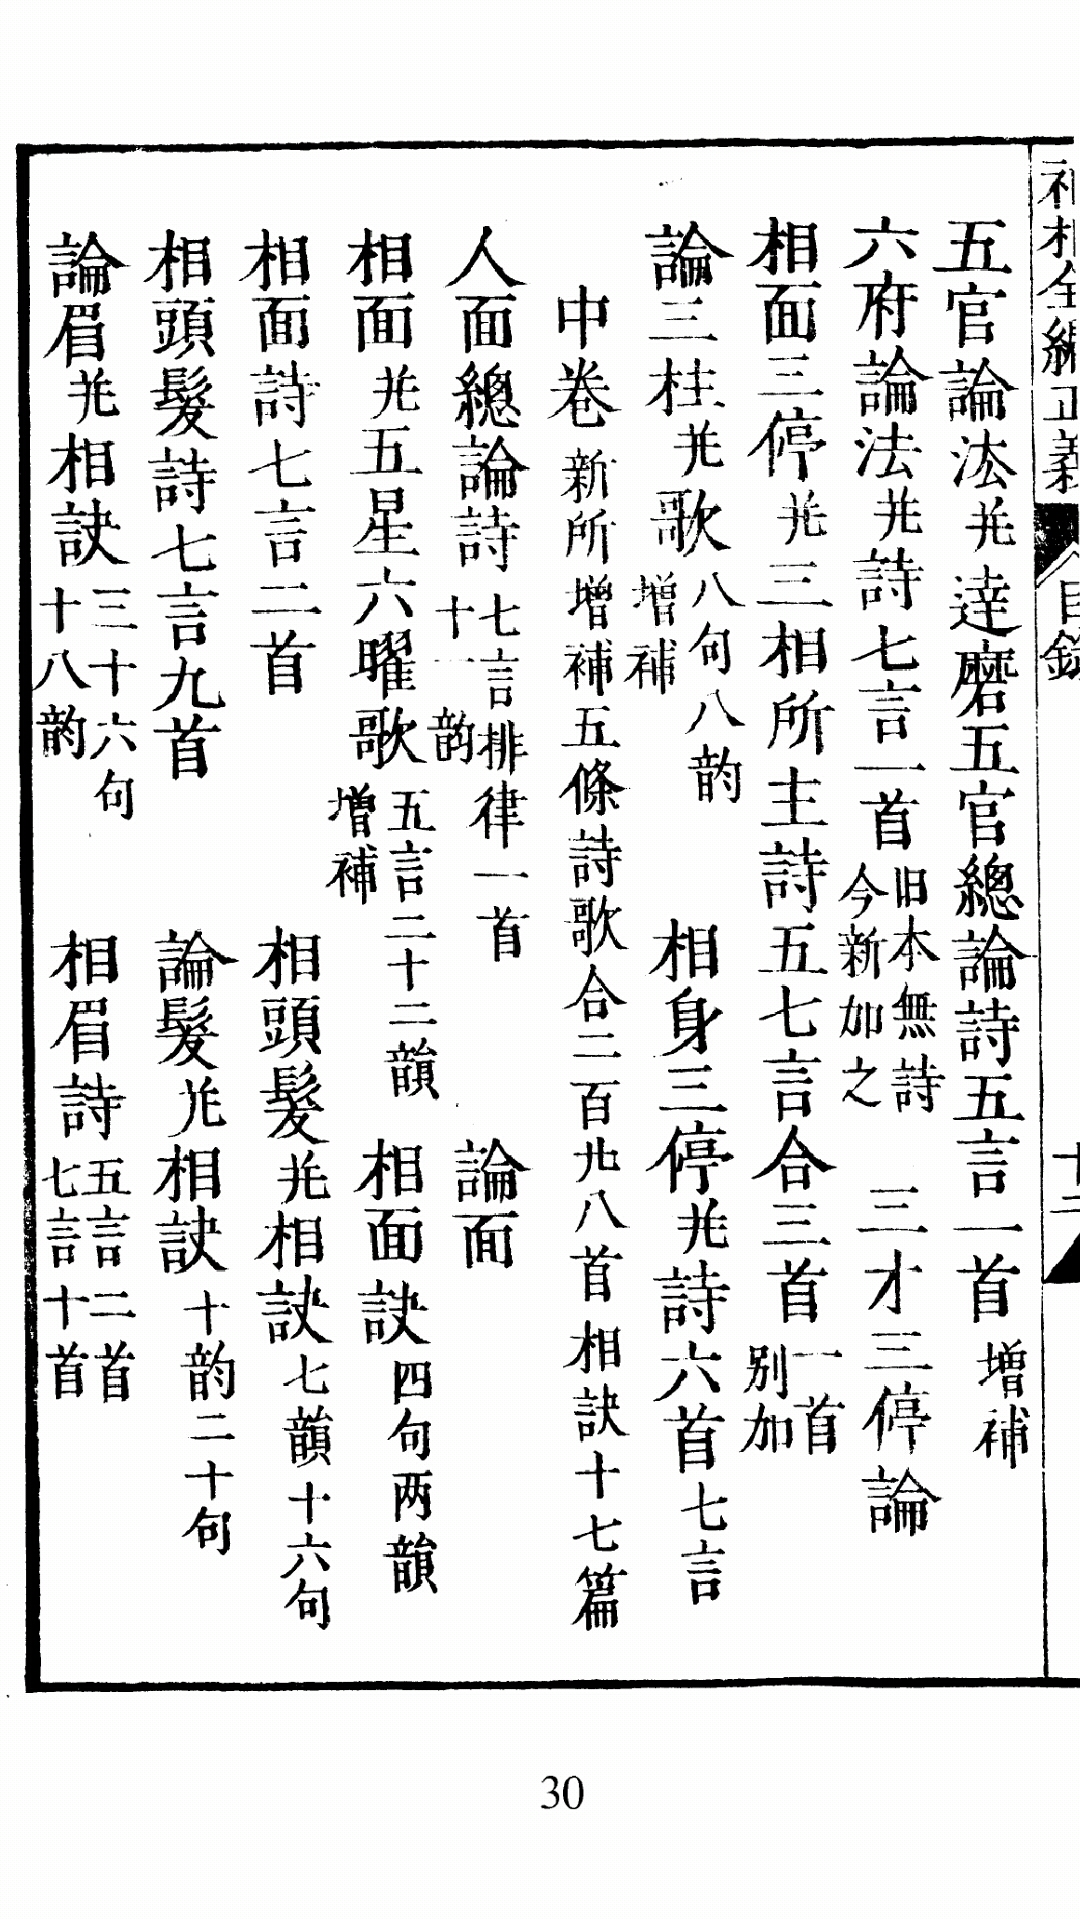 神相全編正義
目錄
十二
五官論法並達磨五官總論詩五言一首 增補
六府論法並詩七言一首 旧本無詩今新加之 三才三停論
相面三停並三相所主詩五七言合三首 一首别加
論三柱並歌 八句八韵增補 相身三停並詩六首七言
中卷 新所增補五條詩歌合二百九八首相訣十七篇
人面總論詩 七言排律一首十一韵 論面
相面並五星六曜歌 五言二十二韻增補 相面訣四句两韻
相面詩七言二首 相頭髮並相訣七韻十六句
相頭髮詩七言九首 論髮並相訣十韵二十句
論眉並相訣 三十六句十八韵 相眉詩 五言二首七言十首
30